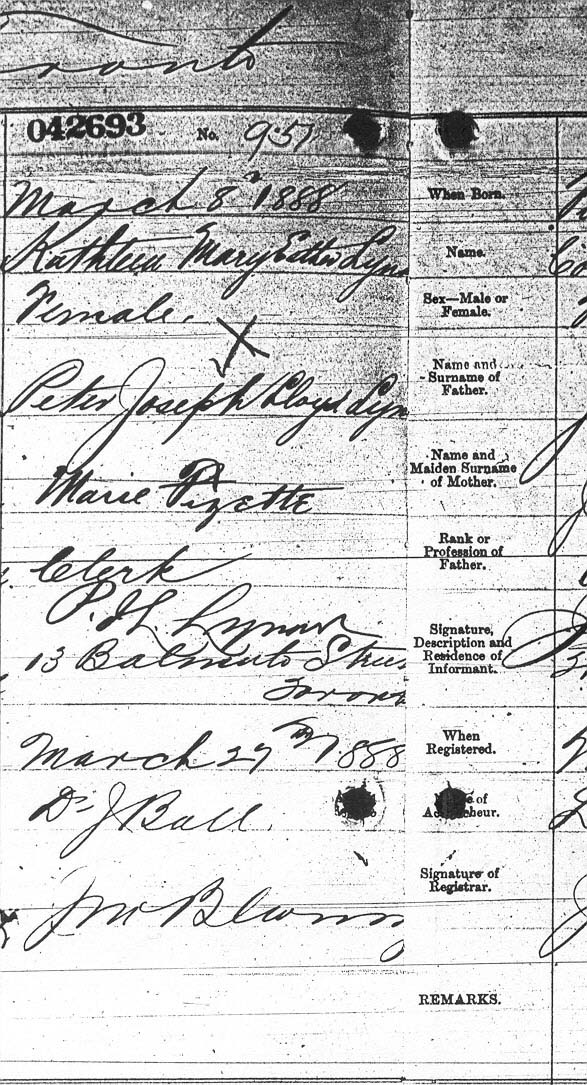 Toronto
042693 No. 951
March 8th 1888 When Born.
Kathleen Mary Esther Lyn Name.
Female. Sex—Male or Female.
X
Peter Joseph Lloyd Lyn Name and Surname of Father.
Marie Name and Maiden Surname of Mother.
Clerk Rank or Profession of Father.
P. J. L. Lynar Signature, Description and Residence of Informant.
13 Balmuto Stree
Toron
March 27th 1888 When Registered.
Dr J Ball. of
Signature of Registrar.
REMARKS.